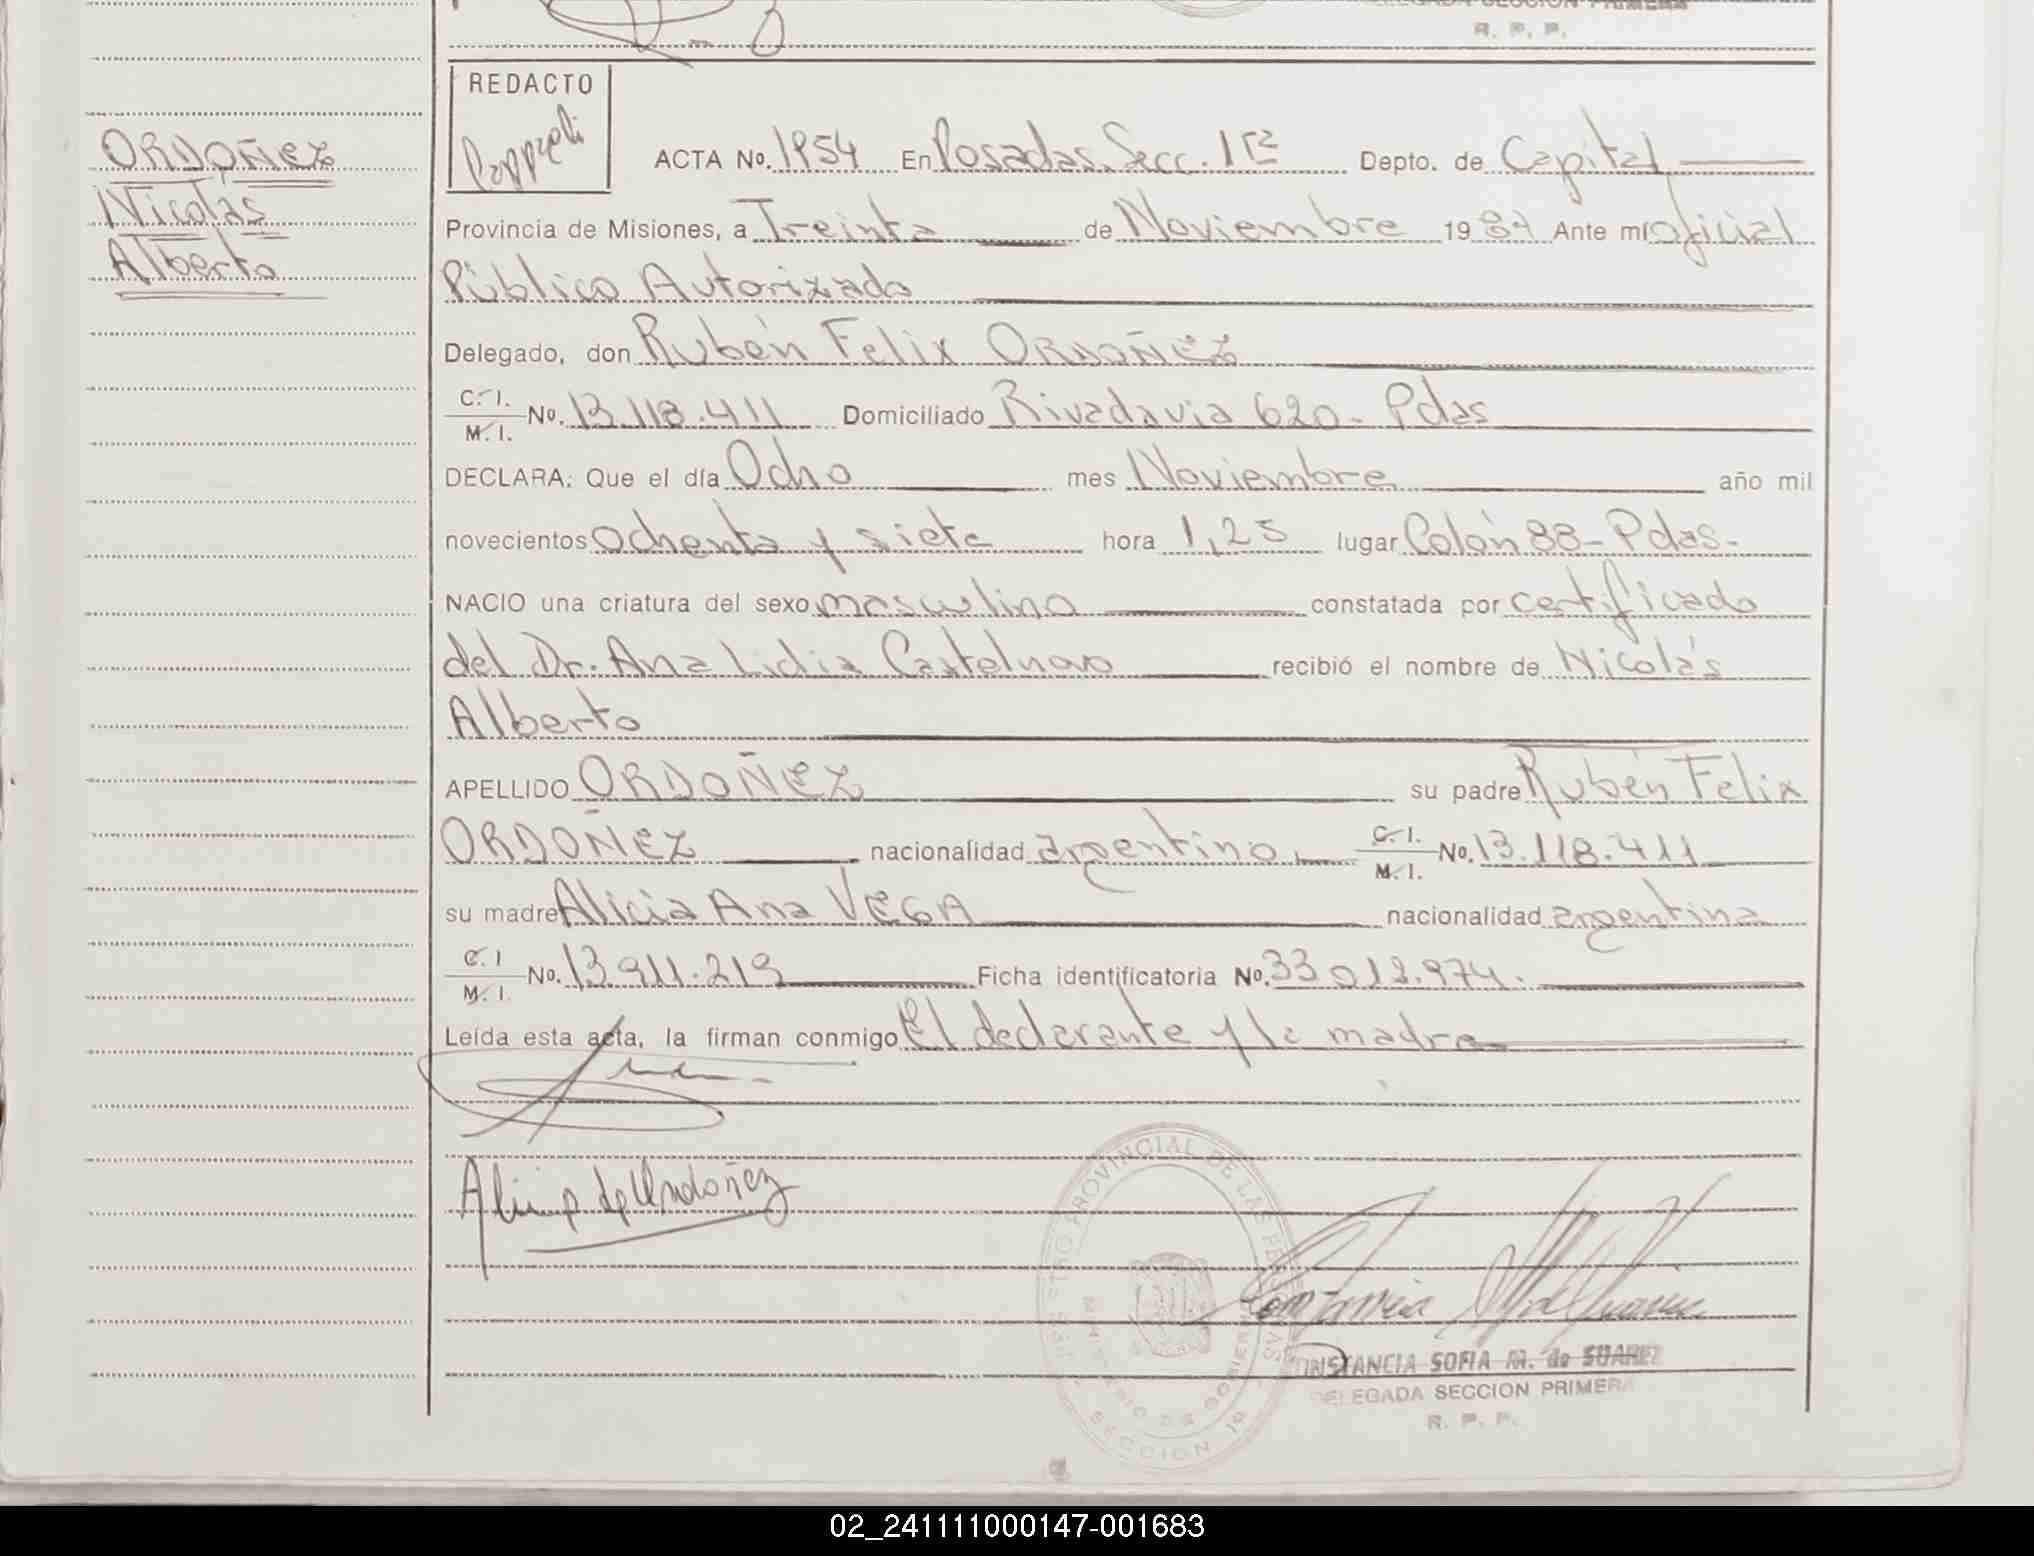 R. P. P.
REDACTO
ORDOÑEZ
Nicolás
Alberto
ACTA No. 1954 En Posadas, Secc. 1ra Depto. de Capital
Provincia de Misiones, a Treinta de Noviembre 1987 Ante mí oficial
Público Autorizado
Delegado, don Rubén Felix ORDOÑEZ
C. I. / M. I. No. 13.118.411 Domiciliado Rivadavia 620 - Pdas
DECLARA: Que el día Ocho mes Noviembre año mil
novecientos ochenta y siete hora 1,25 lugar Colón 88 - Pdas-
NACIO una criatura del sexo masculino constatada por certificado
del Dr. Ana Lidia Castelnovo recibió el nombre de Nicolás
Alberto
APELLIDO ORDOÑEZ su padre Rubén Felix
ORDOÑEZ nacionalidad argentino, C. I. / M. I. No. 13.118.411
su madre Alicia Ana VEGA nacionalidad argentina
C. I / M. I. No. 13.911.219 Ficha identificatoria No. 33.012.974.
Leída esta acta, la firman conmigo El declarante y la madre
Alicia de Ordóñez
REGISTRO PROVINCIAL DE LAS PERSONAS
MINISTERIO DE GOBIERNO
SECCION 1a
CONSTANCIA SOFIA M. de SUAREZ
DELEGADA SECCION PRIMERA
R. P. P.
02_241111000147-001683